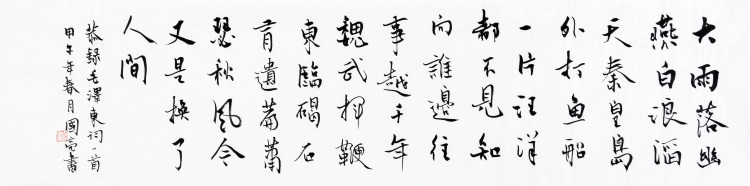 大雨落幽
燕白浪滔
天秦皇島
外打魚船
一片汪洋
都不見知
向誰邊往
事越千年
魏武揮鞭
東臨碣石
有遺篇蕭
瑟秋風今
又是換了
人間
恭録毛澤東詞一首
甲午年春月國亮書